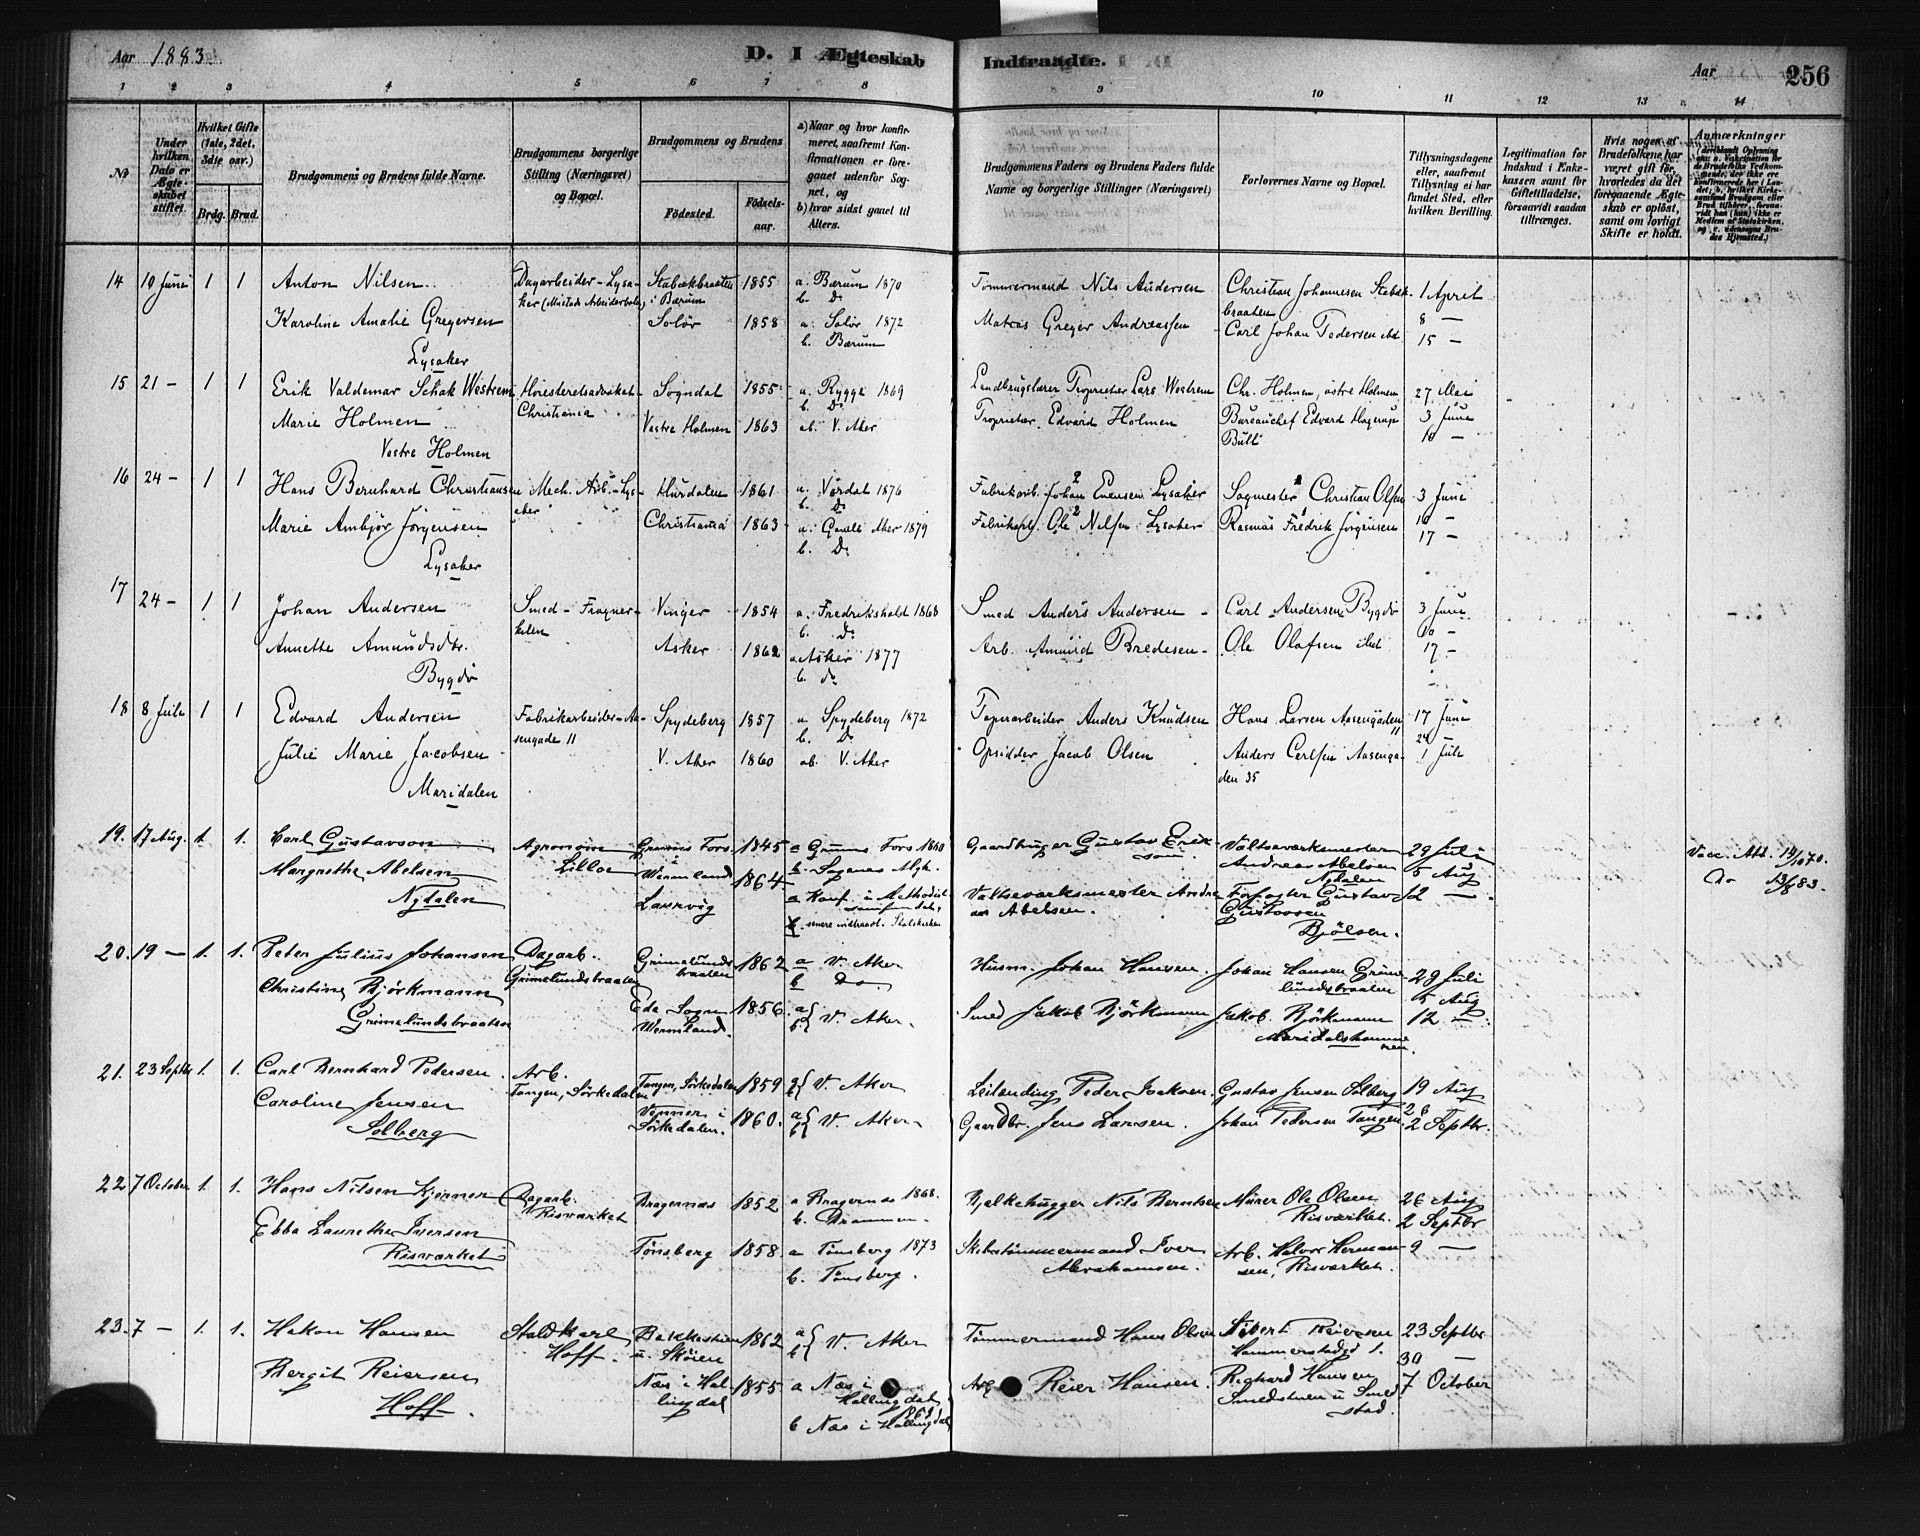 Aar 1883. D. I Ægteskab Indtraadte. Aar 256
1 2 3 4 5 6 7 8 9 10 11 12 13 14
No
Under hvilken Dato er Ægteskabet stiftet.
Hvilket Gifte (1ste, 2det, 3die osv.)
Brdg. Brud.
Brudgommens og Brudens fulde Navne.
Brudgommens borgerlige Stilling (Næringsvei) og Bopæl.
Brudgommens og Brudens
Fødested. Fødselsaar.
a) Naar og hvor konfirmeret, saafremt Konfirmationen er foregaaet udenfor Sognet, og
b) hvor sidst gaaet til Alters.
Brudgommens Faders og Brudens Faders fulde Navne og borgerlige Stillinger (Næringsvei)
Forlovernes Navne og Bopæl.
Tillysningsdagene eller, saafremt Tillysning ei har fundet Sted, efter hvilken Bevilling.
Legitimation for Indskud i Enkekassen samt for Giftetilladelse, forsaavidt saadan tiltrænges.
Hvis nogen af Brudefolkene har været gift før, hvorledes da det foregaaende Ægteskab er opløst, samt om lovligt Skifte er holdt.
Anmærkninger
14 10 Juni 1 1 Anton Nilsen Dagarbeider - Lysaker Stabækbraaten i Bærum 1855 a. Bærum 1870 b. Do Tømmermand Nils Andersen Christian Johannesen Stabækbraaten 1 April
Karoline Amalie Gregersen Solør 1858 a. Solør 1872 b. Bærum Matros Greger Andreassen Carl Johan Pedersen ibd 8 —
Lysaker 15 —
15 21 - 1 1 Erik Valdemar Schak Westrem Høiesteretsadvokat Christiania Sogndal 1855 a. Rygge 1869 b. Do Landbrugslærer Proprietær Lars Westrem Chr. Holmen, østre Holmen 27 Mai
Marie Holmen Vestre Holmen 1863 ab. V. Aker Proprietær Edvard Holmen Bureauchef Edvard Hagerup Bull 3 Juni
Vestre Holmen 10 —
16 24 - 1 1 Hans Bernhard Christiansen Mech. Arb. - Lysaker Hurdalen 1861 a. 1876 b. Do Fabrikarb. Johan Evensen Lysaker Sagmester Christian Olsen 3 Juni
Marie Ambjør Jørgensen Christiania 1863 a. Gamle Aker 1879 b. Do Fabrikarb. Ole Nilsen Lysaker Rasmus Fredrik Jørgensen 10 —
Lysaker 17 —
17 24 - 1 1 Johan Andersen Smed - Frognerkilen Vinger 1854 a. Fredrikshald 1868 b. Do Smed Anders Andersen Carl Andersen Bygdø 3 Juni
Annette Amundsdtr. Asker 1862 a. Asker 1877 b. do Arb. Amund Bredesen Ole Olafsen ibd 10 —
Bygdø 17 —
18 8 Juli 1 1 Edvard Andersen Fabrikarbeider - Aasengade 11 Spydeberg 1857 a. Spydeberg 1872 b. Do Anders Knudsen Hans Larsen Aasengaden 11 17 Juni
Julie Marie Jacobsen V. Aker 1860 ab. V. Aker Opsidder Jacob Olsen Anders Carlsen Aasengaden 35 24 1 Juli
Maridalen
19. 17 Aug. 1. 1. Carl Gustavson Agronom Lilloe Grums Fors. i Wermland 1845 a Grums Fors 1860 b. Sagenes Mgk. Gaardbruger Gustav Erikson Valtseværksmester Andreas Abelsen Nydalen 29 Juli Vacc. Att. 14/10 70.
Margrethe Abelsen Laurvig 1864 a Konf. i Methodistsamfundet, b. senere indtraadt. Statskirken Valtseværksmester Andreas Abelsen. Forfatter Gustav Gustavsen Bjølsen. 5 Aug Do 13/8 83.
Nydalen 12 —
20. 19 — 1. 1. Peter Julius Johansen Dagarb. Grimelundsbraaten Grimelundsbraaten 1862 a V. Aker b Do Husm. Johan Hansen. Johan Hansen Grimelundsbraaten 29 Juli
Christine Bjørkmann Eda Sogn Wermland. 1856. a b V. Aker. Smed Jakob Bjørkmann Jakob Bjørkmann Maridalshammeren. 5 Aug
Grimelundsbraaten 12 —
21. 23 Septbr 1. 1. Carl Bernhard Pedersen. Arb. Tangen, Sørkedalen Tangen, Sørkedalen 1859 a b V. Aker Leilending Peder Gustav Jensen Solberg 19 Aug
Caroline Jensen i Sørkedalen. 1860. a b V. Aker. Gaardbr. Jens Larsen. Johan Pedersen Tangen. 26
Solberg 2 Septbr.
22 7 October 1. 1. Hans Nilsen Kjerner Dagarb. Risværket Bragernæs 1852 a Bragernæs 1868. b. Drammen. Bjelkehugger Nils Berntsen Murer Ole Olsen Risværket. 26 Aug
Ebba Laurethe Iversen Tønsberg 1858. a Tønsberg 1873 b. Tønsberg. Skibstømmermand Iver Abrahamsen. Arb. Halvor Hermansen, Risværket. 2 Septbr
Risværket 9 —
23. 7 — 1. 1. Hakon Hansen Staldkarl Hoff. Bakkestuen u. Skøien 1862 a b V. Aker Tømmermand Hans Olsen Sivert Reiersen Hammerstadgd 1. 23 Septbr
Bergit Reiersen Næs i Hallingdal 1855 a Næs i Hallingdal b Næs i Hallingdal Arb Reier Hansen. Richard Hansen Smedstuen u Smedstad. 30 —
Hoff. 7 October